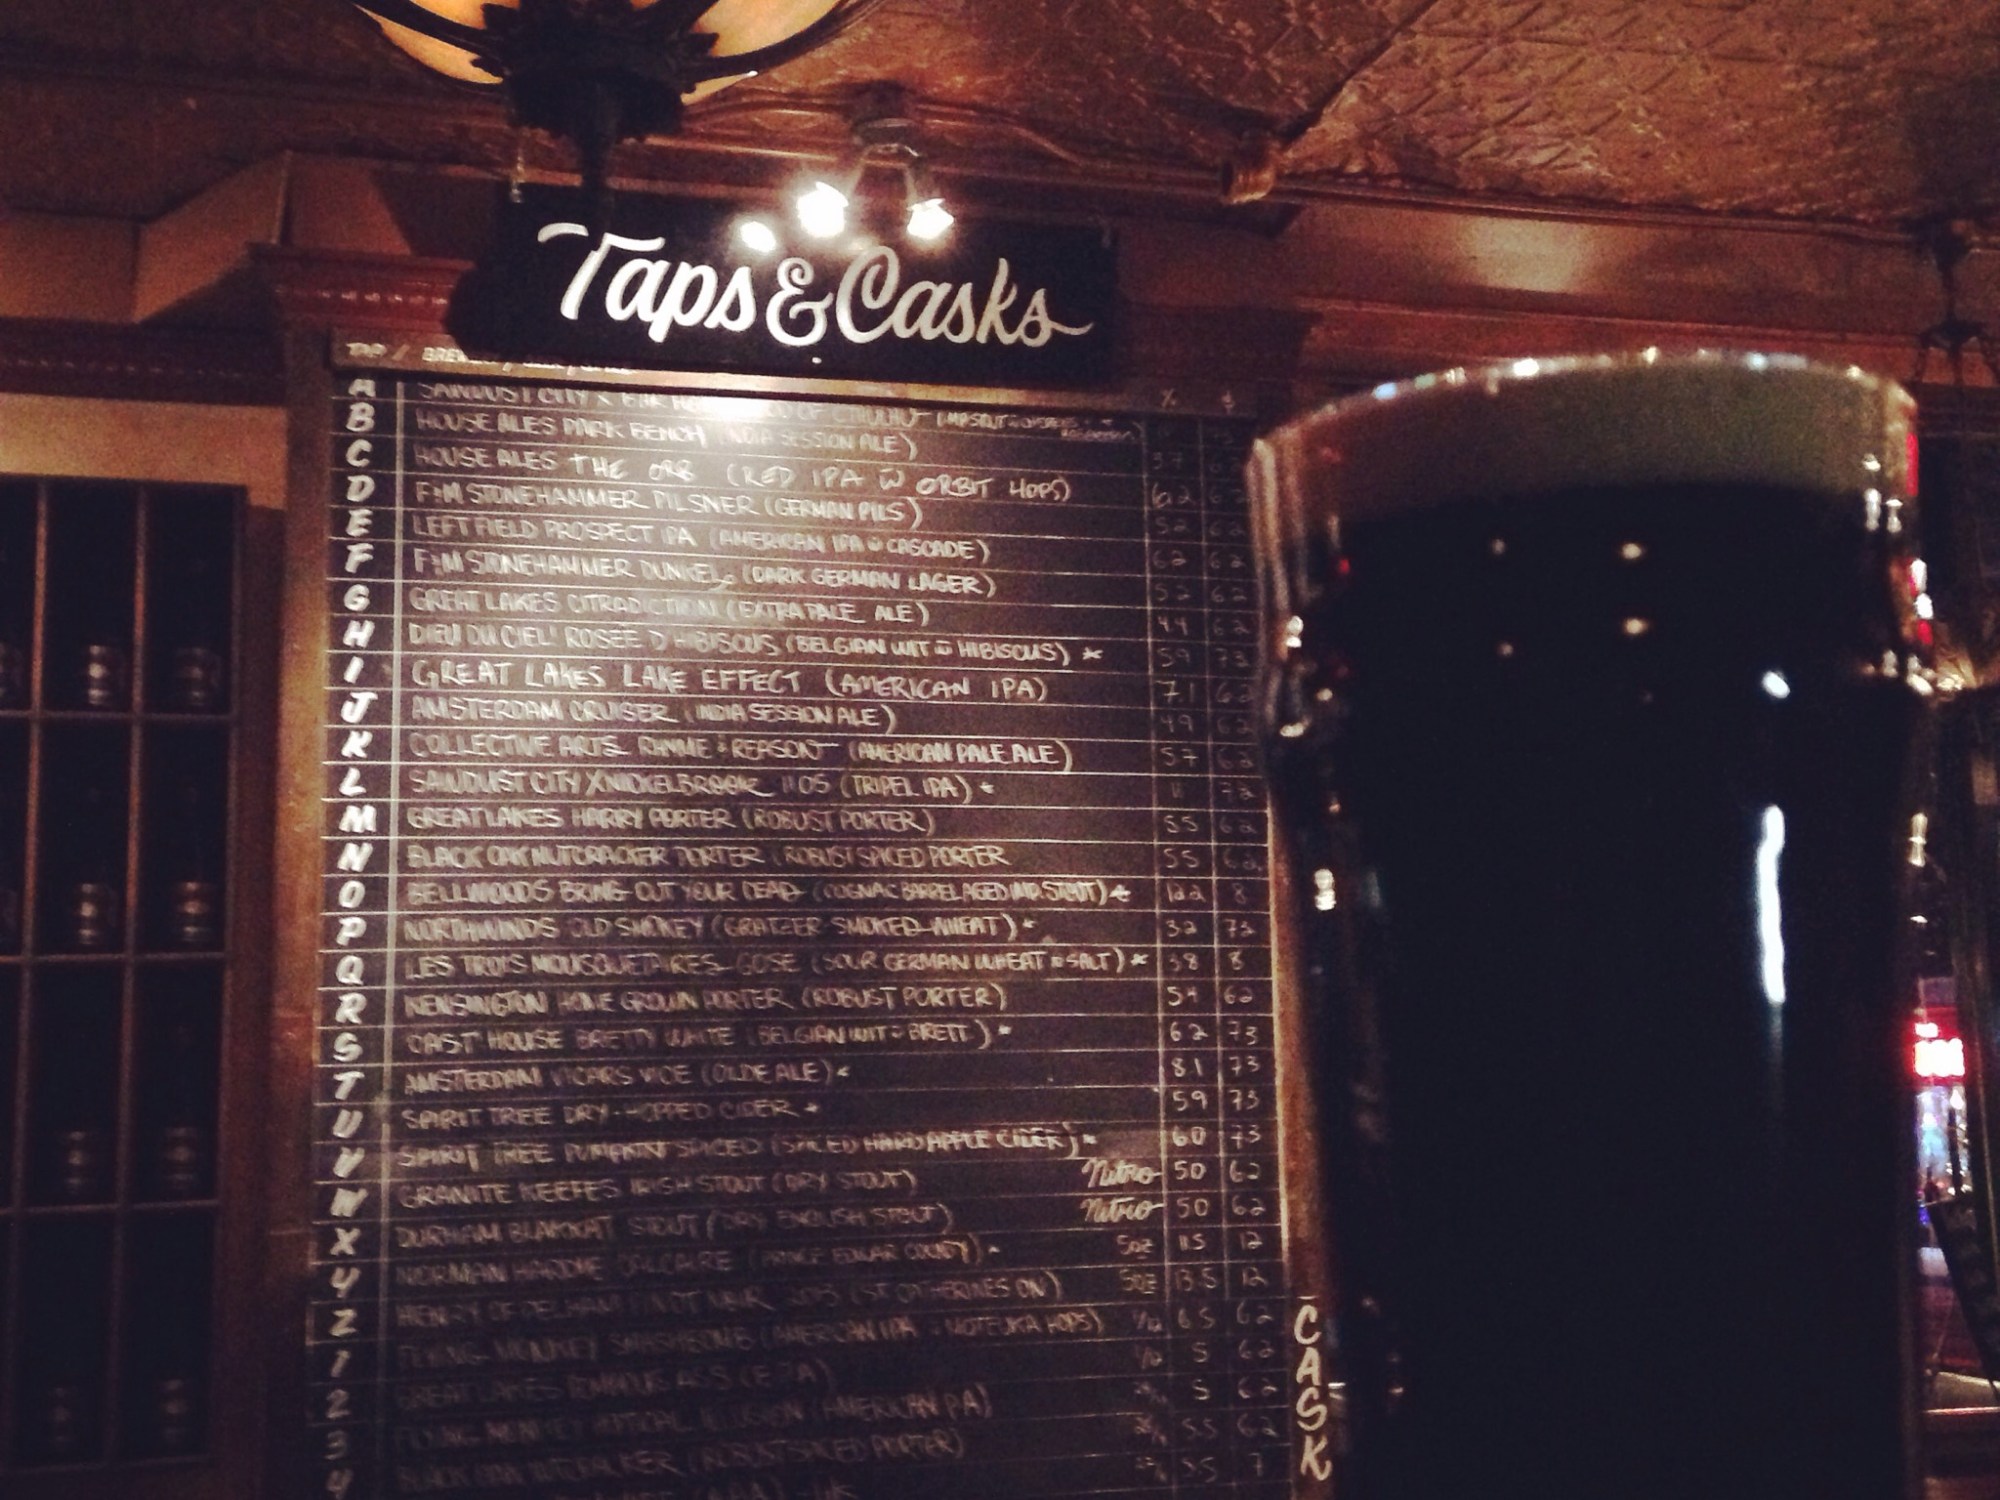 Taps & Casks
TAP / BREWERY
% $
A SAWDUST CITY X OF CTHULHU
B HOUSE ALES PARK BENCH (INDIA SESSION ALE) 37
C HOUSE ALES THE ORB (RED IPA W ORBIT HOPS) 62 62
D F&M STONEHAMMER PILSNER (GERMAN PILS) 52 62
E LEFT FIELD PROSPECT IPA (AMERICAN IPA W CASCADE) 62 62
F F&M STONEHAMMER DUNKEL (DARK GERMAN LAGER) 52 62
G GREAT LAKES CITRADICTION (EXTRA PALE ALE) 44 62
H DIEU DU CIEL! ROSÉE D'HIBISCUS (BELGIAN WIT W HIBISCUS) * 59 73
I GREAT LAKES LAKE EFFECT (AMERICAN IPA) 7.1 62
J AMSTERDAM CRUISER (INDIA SESSION ALE) 49 62
K COLLECTIVE ARTS RHYME & REASON (AMERICAN PALE ALE) 57 62
L SAWDUST CITY X NICKELBROOK 1105 (TRIPEL IPA) * 11 73
M GREAT LAKES HARRY PORTER (ROBUST PORTER) 55 62
N BLACK OAK NUTCRACKER PORTER (ROBUST SPICED PORTER 55 62
O BELLWOODS BRING OUT YOUR DEAD (COGNAC BARREL AGED IMP. STOUT) * 122 8
P NORTHWINDS OLD SMOKEY (GRATZER-SMOKED WHEAT) * 32 73
Q LES TROIS MOUSQUETAIRES GOSE (SOUR GERMAN WHEAT W SALT) * 38 8
R KENSINGTON HOME GROWN PORTER (ROBUST PORTER) 54 62
S CAST HOUSE BRETTY WHITE (BELGIAN WIT W BRETT) * 62 73
T AMSTERDAM VICARS VICE (OLDE ALE) * 81 73
U SPIRIT TREE DRY-HOPPED CIDER * 59 73
V SPIRIT TREE PUMPKIN SPICED (SPICED HARD APPLE CIDER) * 60 73
W GRANITE KEEFES IRISH STOUT (DRY STOUT) Nitro 50 62
X DURHAM BLAKKAT STOUT (DRY ENGLISH STOUT) Nitro 50 62
Y NORMAN HARDIE CALCAIRE (PRINCE EDWARD COUNTY) 5oz 11.5 12
Z HENRY OF PELHAM PINOT NOIR 2013 (ST. CATHERINES ON) 5oz 13.5 12
1 FLYING MONKEY SMASHBOMB (AMERICAN IPA W MOTEUKA HOPS) 6.5 62
2 GREAT LAKES POMPOUS ASS (EPA) 5 62
3 FLYING MONKEY OPTICAL ILLUSION (AMERICAN PA) 5 62
4 BLACK OAK NUTCRACKER (ROBUST SPICED PORTER) 5.5 62
5.5 7
CASK